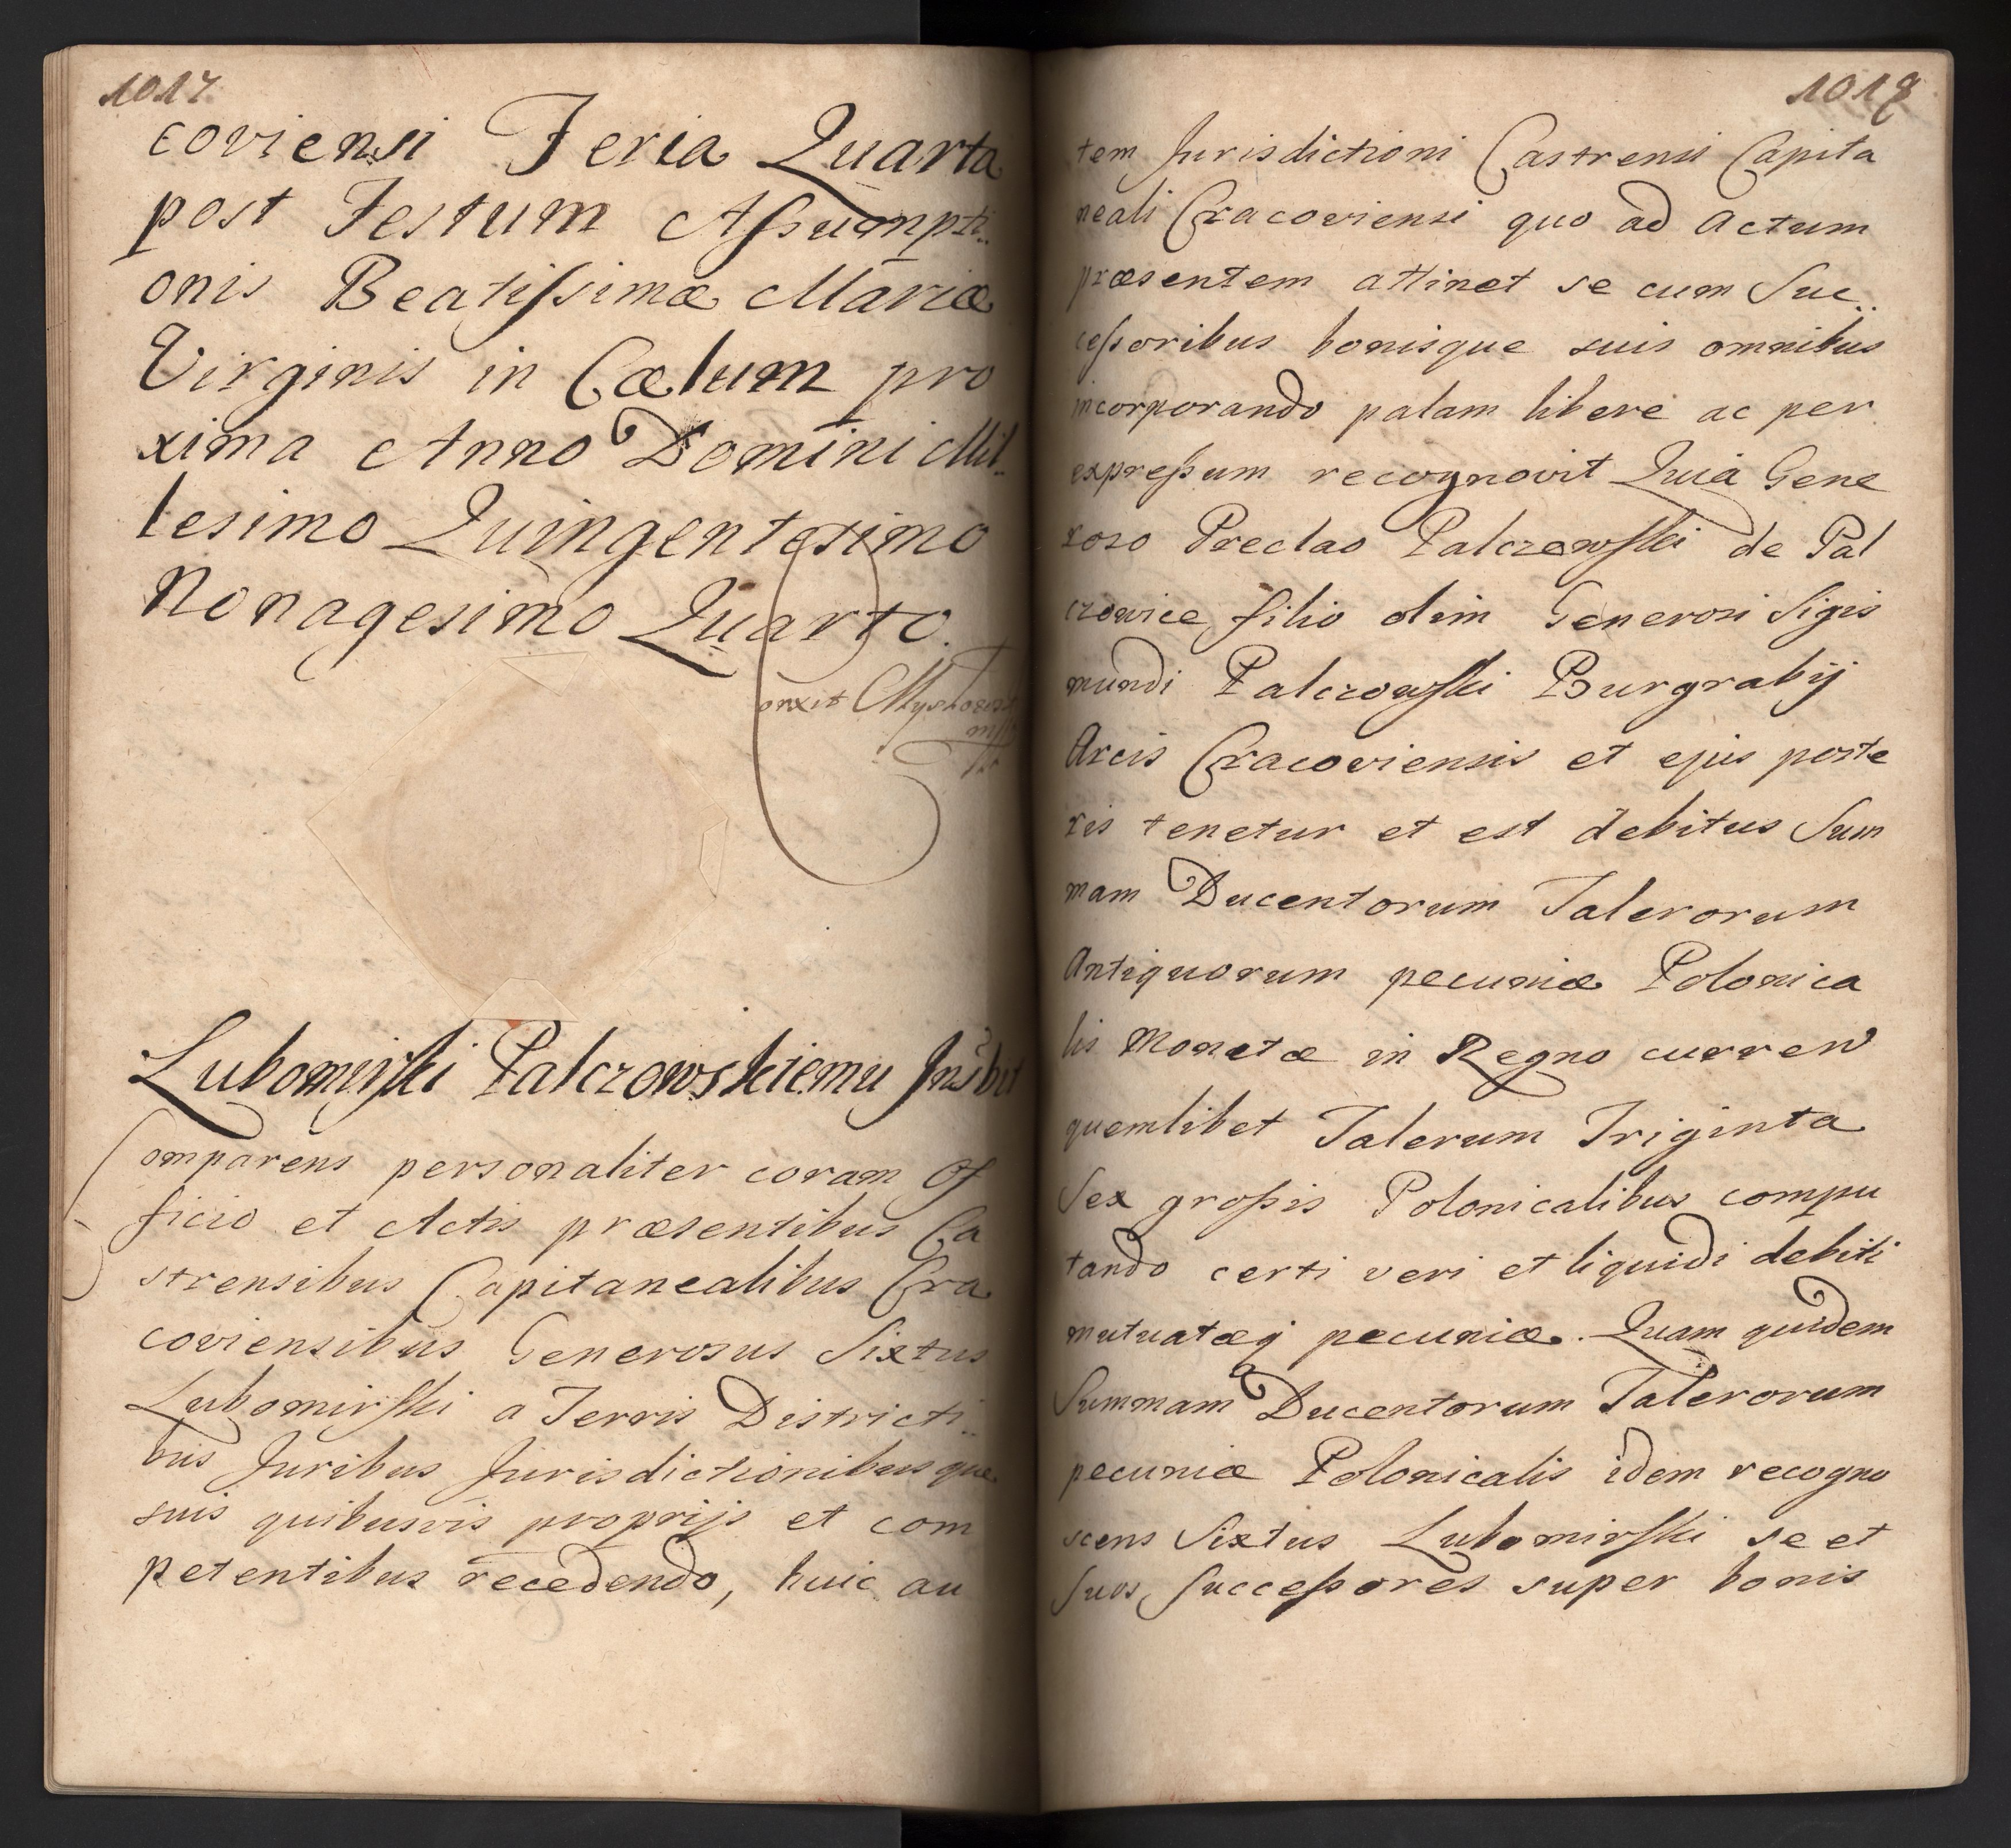 1017
coviensi Feria Quarta
post Festum Assumpti..
onis Beatissimæ Mariæ
Virginis in Cælum pro
xima Anno Domini Mil..
lesimo Quingentesimo
Nonagesimo Quarto.
Lubomirski Palczowskiemu
Comparens personaliter coram Of
ficio et Actis præsentibus Ca
strensibus Capitanealibus Cra
coviensibus Generosus Sixtus
Lubomirski a Terris Districti..
bus Juribus Jurisdictionibusque
suis quibusvis proprijs et com
petentibus recedendo, huic au
1018
tem Jurisdictioni Castrensi Capita
neali Cracoviensi quo ad Actum
præsentem attinet se cum Suc..
cessoribus bonisque suis omnibus
incorporando palam libere ac per
expressum recognovit Quia Gene
roso Preclao Palczewski de Pal
czowice filio olim Generosi Sigis
mundi Palczowski Burgrabij
Arcis Cracoviensis et ejus poste
ris tenetur et est debitus Sum
mam Ducentorum Talerorum
Antiquorum pecuniæ Polonica
lis Monetæ in Regno curren
quemlibet Talerum Triginta
Sex grossis Polonicalibus compu
tando certi veri et liquidi debiti
mutuatæq pecuniæ. Quam quidem
Summam Ducentorum Talerorum
pecuniæ Polonicalis idem recogno
scens Sixtus Lubomirski se et
suos Successores super bonis